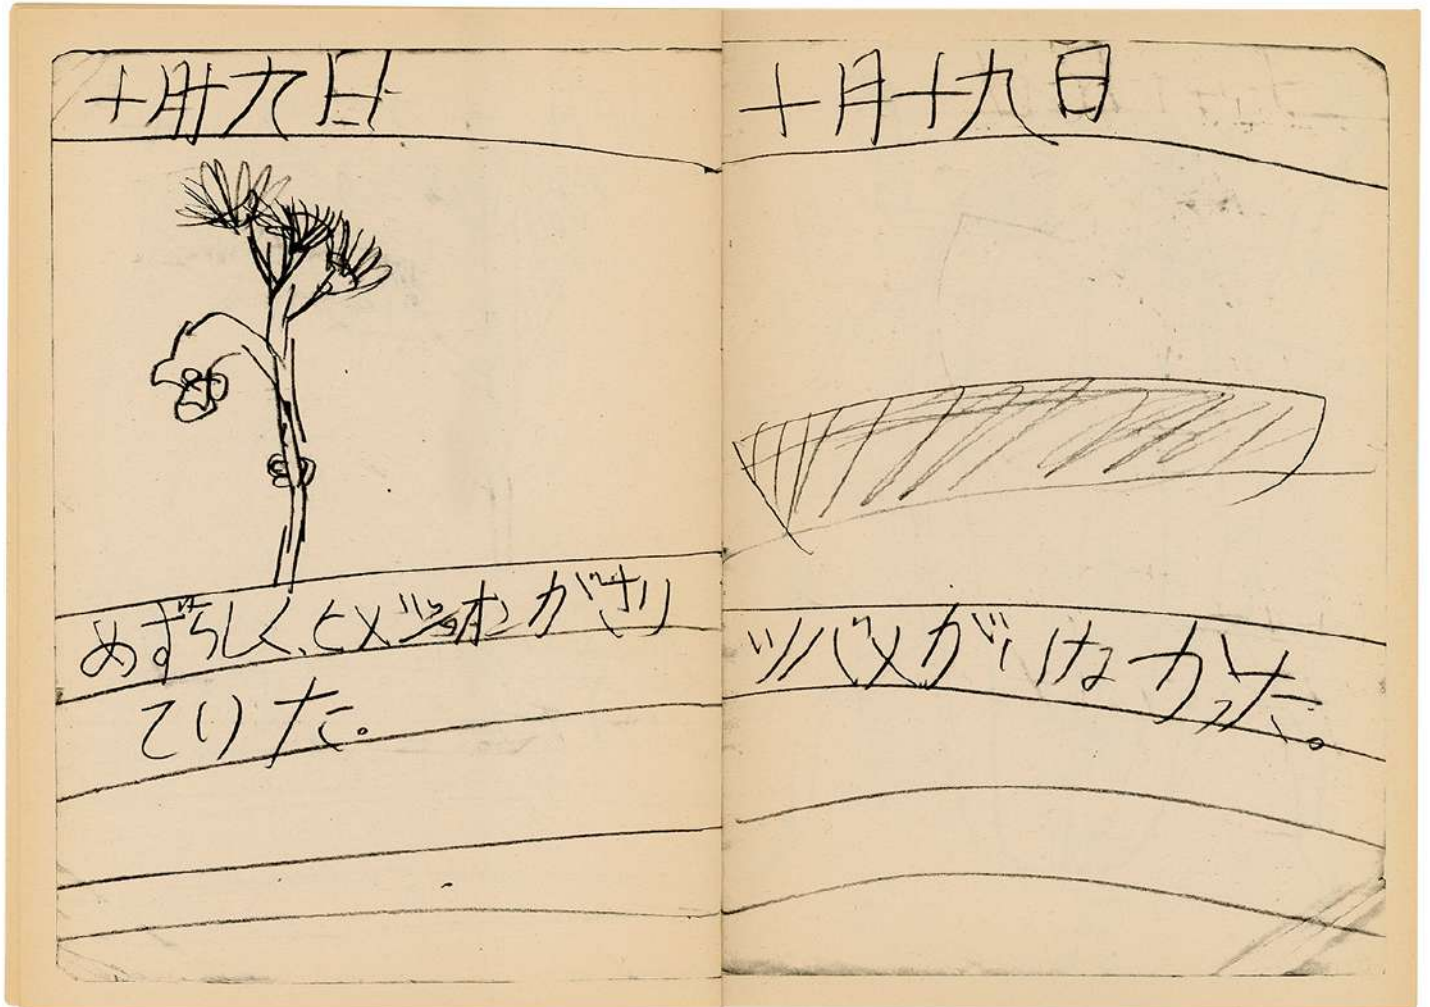 十月十九日
めずらしく、ヒメジョオンがさい
ていた。
十月十九日
ツバメがいなかった。